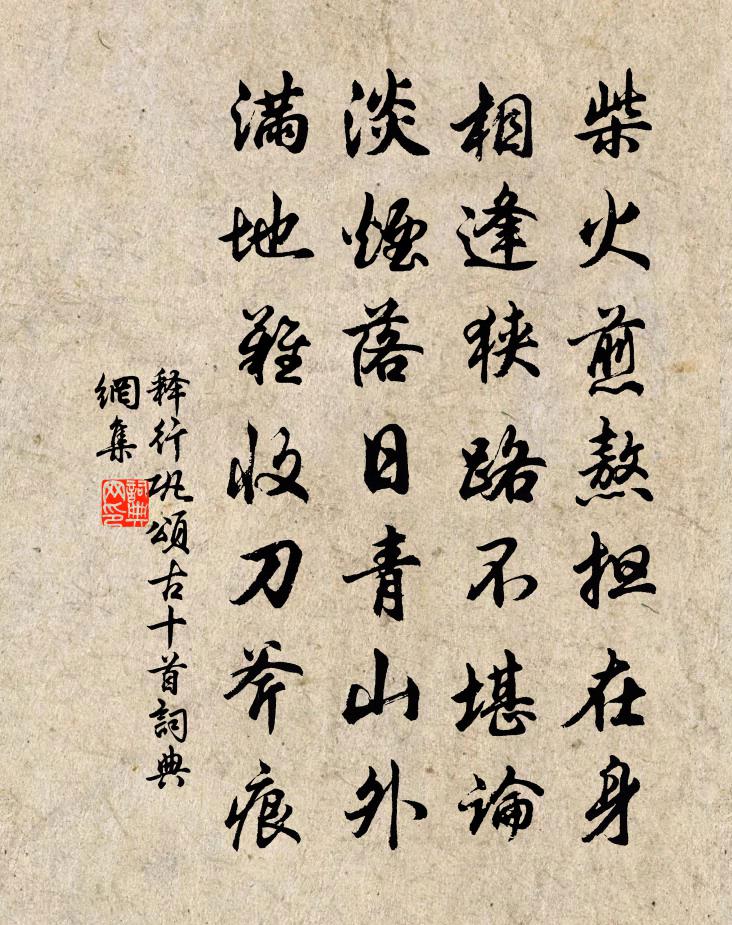 柴火煎熬担在身
相逢狭路不堪論
淡煙落日青山外
满地難收刀斧痕
释行巩頌古十首詞典
網集
詞典
网印